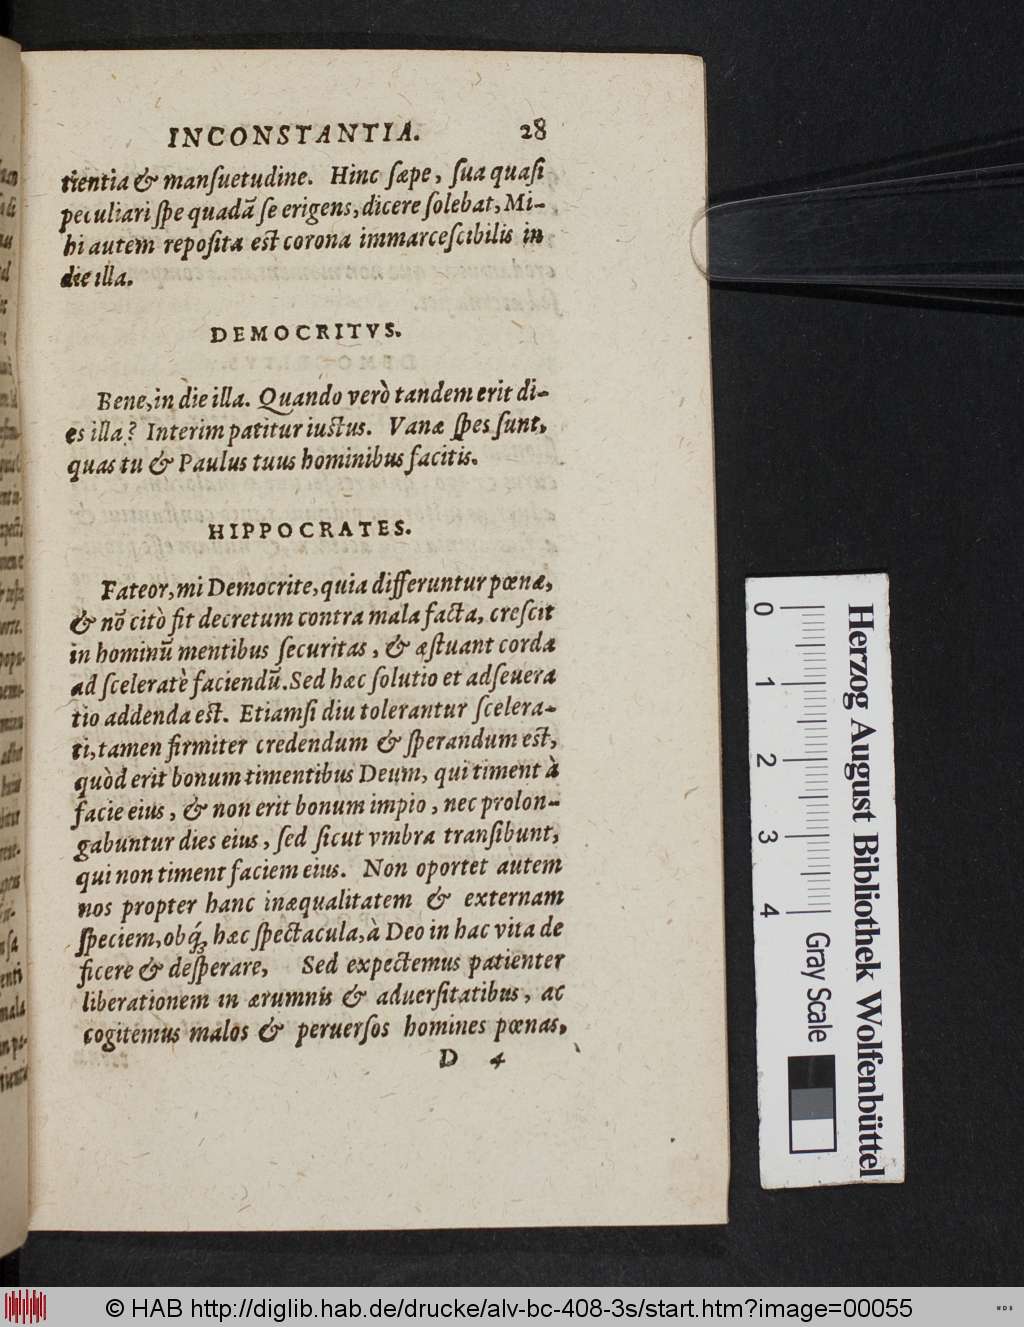 INCONSTANTIA. 28
tientia & manſuetudine. Hinc ſæpe, ſua quaſi
peculiari ſpe quadã ſe erigens, dicere ſolebat, Mi-
hi autem repoſita eſt corona immarceſcibilis in
die illa.
DEMOCRITVS.
Bene, in die illa. Quando verò tandem erit di-
es illa? Interim patitur iuſtus. Vanæ ſpes ſunt,
quas tu & Paulus tuus hominibus facitis.
HIPPOCRATES.
Fateor, mi Democrite, quia differuntur pœnæ,
& nõ citò fit decretum contra mala facta, creſcit
in hominũ mentibus ſecuritas, & æſtuant corda
ad ſceleratè faciendũ. Sed hæc ſolutio et adſeuera
tio addenda eſt. Etiamſi diu tolerantur ſcelera-
ti, tamen firmiter credendum & ſperandum eſt,
quòd erit bonum timentibus Deum, qui timent à
facie eius, & non erit bonum impio, nec prolon-
gabuntur dies eius, ſed ſicut vmbra tranſibunt,
qui non timent faciem eius. Non oportet autem
nos propter hanc inæqualitatem & externam
ſpeciem, obq́; hæc ſpectacula, à Deo in hac vita de
ficere & deſperare, Sed expectemus patienter
liberationem in ærumnis & aduerſitatibus, ac
cogitemus malos & peruerſos homines pœnas,
D 4
0 1 2 3 4
Gray Scale
Herzog August Bibliothek Wolfenbüttel
© HAB http://diglib.hab.de/drucke/alv-bc-408-3s/start.htm?image=00055